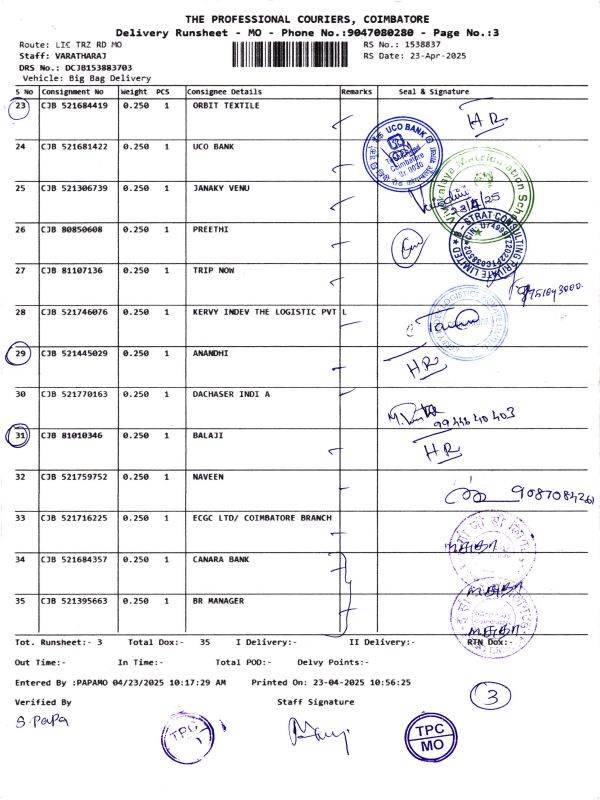 THE PROFESSIONAL COURIERS, COIMBATORE
Delivery Runsheet - MO - Phone No.:9047080280 - Page No.:3
Route: LIC TRZ RD MO
RS No.: 1538837
Staff: VARATHARAJ
RS Date: 23-Apr-2025
DRS No.: DCJB153883703
Vehicle: Big Bag Delivery
S No Consignment No Weight PCS Consignee Details Remarks Seal & Signature
23 CJB 521684419 0.250 1 ORBIT TEXTILE HR
24 CJB 521681422 0.250 1 UCO BANK
UCO BANK
Coimbatore
25 CJB 521306739 0.250 1 JANAKY VENU
23/4/25
26 CJB 80850608 0.250 1 PREETHI
STRAT CONSULTING PRIVATE LIMITED
27 CJB 81107136 0.250 1 TRIP NOW
28 CJB 521746076 0.250 1 KERVY INDEV THE LOGISTIC PVT L
29 CJB 521445029 0.250 1 ANANDHI HR
30 CJB 521770163 0.250 1 DACHASER INDI A
99446 40403
31 CJB 81010346 0.250 1 BALAJI HR
32 CJB 521759752 0.250 1 NAVEEN
33 CJB 521716225 0.250 1 ECGC LTD/ COIMBATORE BRANCH
34 CJB 521684357 0.250 1 CANARA BANK
35 CJB 521395663 0.250 1 BR MANAGER
Tot. Runsheet:- 3 Total Dox:- 35 I Delivery:- II Delivery:- RTN Dox:-
Out Time:- In Time:- Total POD:- Delvy Points:-
Entered By :PAPAMO 04/23/2025 10:17:29 AM Printed On: 23-04-2025 10:56:25
3
Verified By Staff Signature
S.PAPA
TPC
TPC
MO